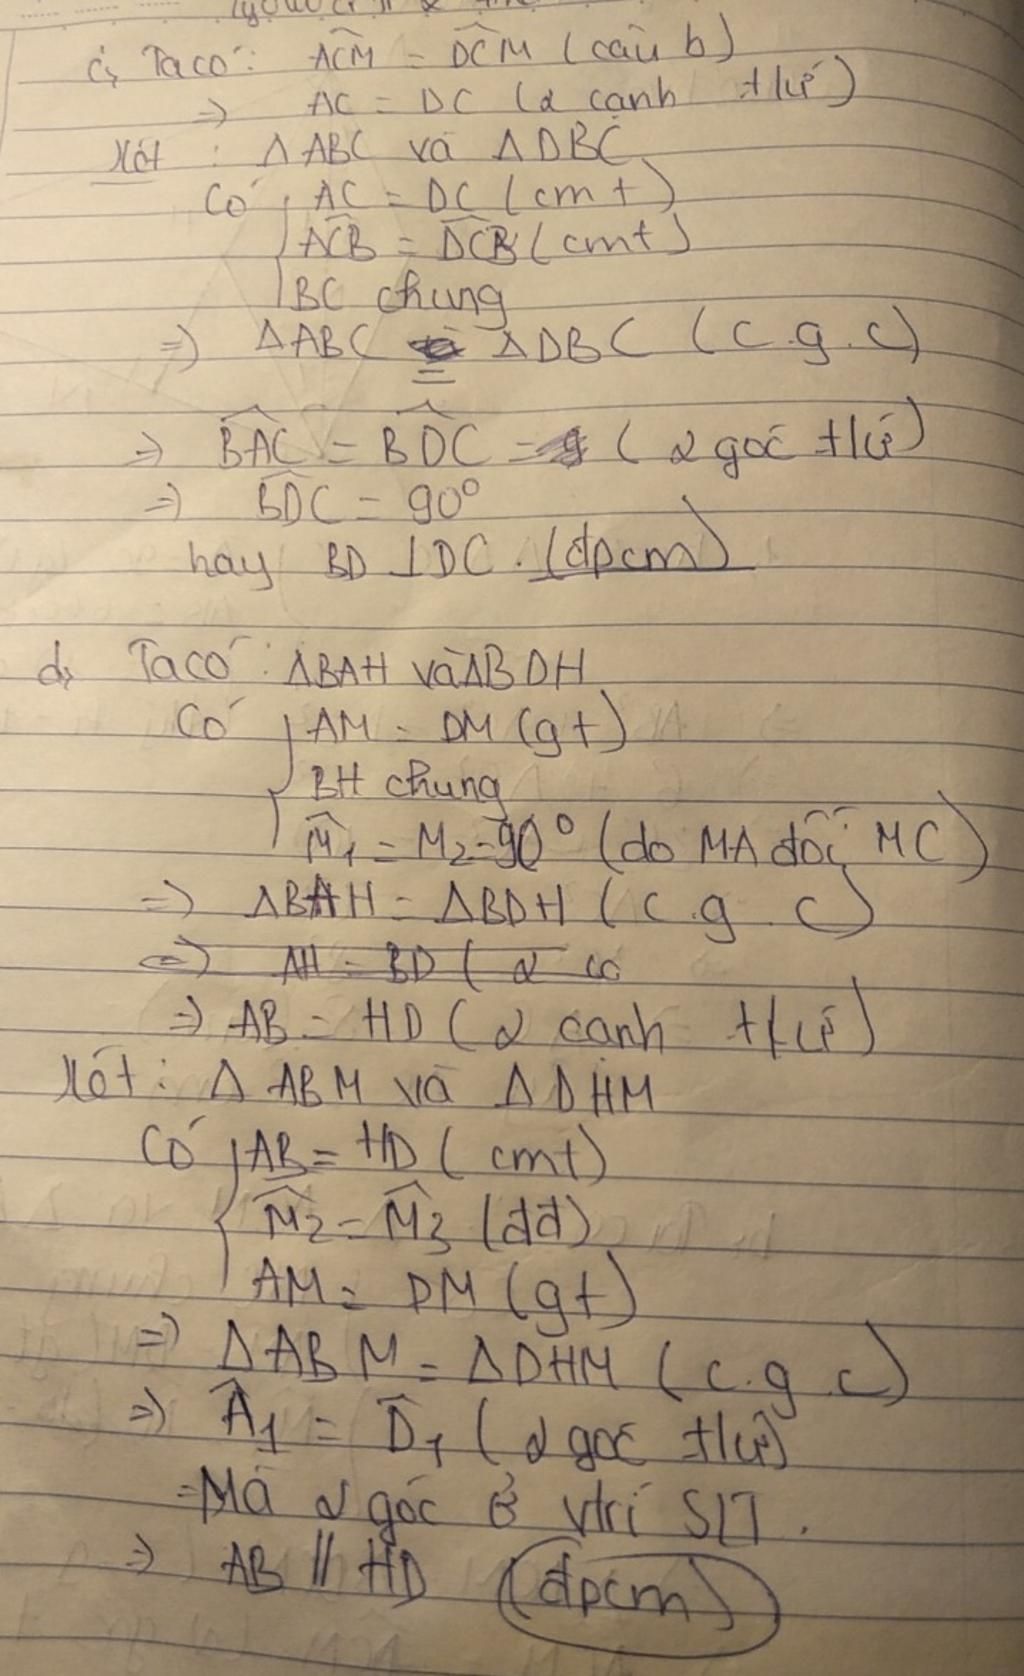 c, Ta có: ACM = DCM (câu b)
=> AC = DC (2 cạnh tứ)
Xét : Δ ABC và Δ DBC
Có AC = DC (cmt)
ACB = DCB (cmt)
BC chung
=> ΔABC = ΔDBC (c.g.c)
=> BAC = BDC = (2 góc tứ)
=> BDC = 90°
hay BD ⊥ DC. (đpcm)
d, Ta có: ΔBAH và ΔBDH
Có AM = DM (gt)
BH chung
M1 = M2 = 90° (do MA đối MC)
=> ΔBAH = ΔBDH (c.g.c)
=> AH = BD ( 2 cạ
=> AB = HD (2 cạnh tứ)
Xét: Δ ABM và Δ DHM
Có AB = HD (cmt)
M2 = M3 (đđ)
AM = DM (gt)
=> ΔABM = ΔDHM (c.g.c)
=> A1 = D1 (2 góc tứ)
Mà 2 góc ở vtrí SLT.
=> AB // HD (đpcm)